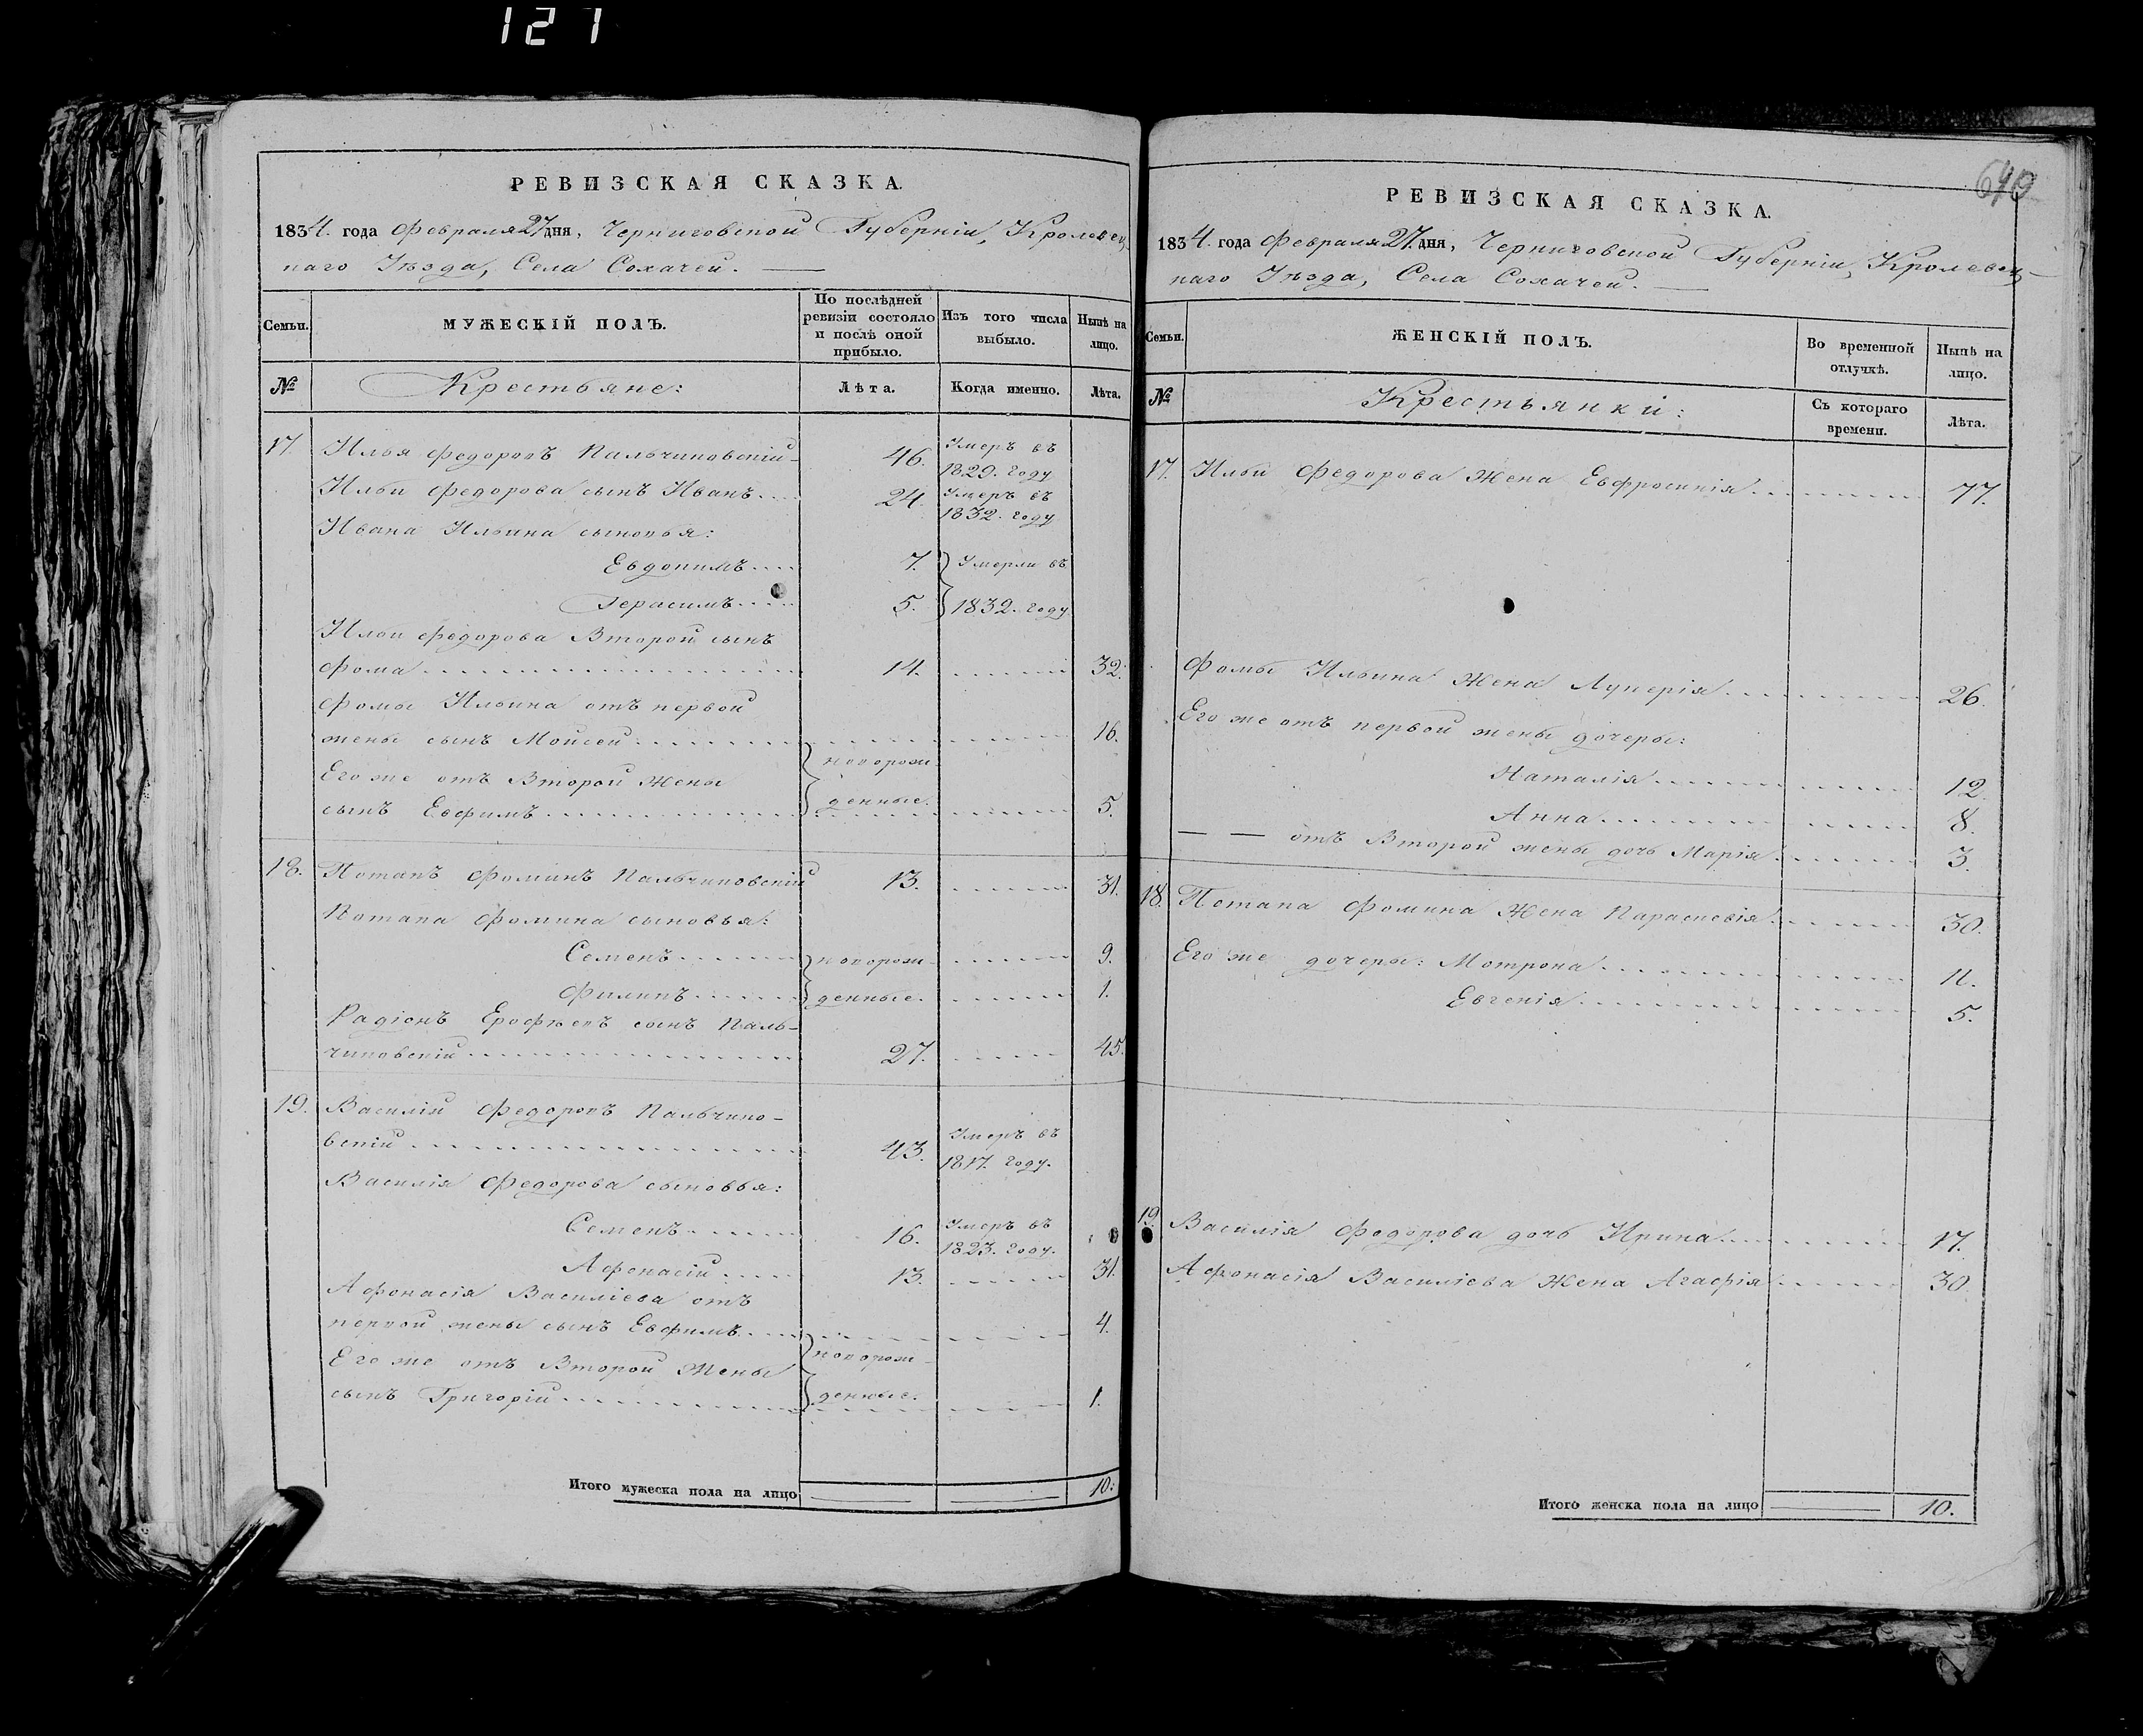 127
РЕВИЗСКАЯ СКАЗКА.
1834. года Февраля 27 дня, Черниговской Губерніи, Кролевец
каго Уѣзда, Села Сохачей.
Семьи.
МУЖЕСКІЙ ПОЛЪ.
По послѣдней ревизіи состояло и послѣ оной прибыло.
Изъ того числа выбыло.
Нынѣ на лицо.
№
Крестьяне:
Лѣта.
Когда именно.
Лѣта.
17. Илья Федоровъ Пальчиковскій 46. Умеръ въ 1829. году
Ильи Федорова сынъ Иванъ.... 24. Умеръ въ 1832. году
Ивана Ильина сыновья:
Евдокимъ.... 7. Умерли въ
Герасимъ.... 5. 1832. году
Ильи Федорова Второй сынъ
Фома 14. 32.
Фомы Ильина отъ первой
жены сынъ Мойсей 16.
новорож-
Его же отъ Второй Жены
сынъ Евфимъ денные. 5.
18. Потапъ Фоминъ Пальчиковскій 13. 31.
Потапа Фомина сыновья:
Семенъ новорож- 9.
Филипъ денные. 1.
Радіонъ Ерофѣевъ сынъ Паль-
чиковскій 27. 45.
19. Василій Федоровъ Пальчико-
вскій 43. Умеръ въ 1817. году.
Василія Федорова сыновья:
Семенъ 16. Умеръ въ 1823. году.
Афонасій 13. 31.
Афонасія Василіева отъ
первой жены сынъ Евфимъ 4.
новорож-
Его же отъ Второй Жены
сынъ Григорій денные. 1.
Итого мужеска пола на лицо 10.
640
РЕВИЗСКАЯ СКАЗКА.
1834. года Февраля 27. дня, Черниговской Губерніи, Кролевец-
каго Уѣзда, Села Сохачей.
Семьи.
ЖЕНСКІЙ ПОЛЪ.
Во временной отлучкѣ.
Нынѣ на лицо.
№
Крестьянки:
Съ котораго времени.
Лѣта.
17. Ильи Федорова Жена Евфросинія 77.
Фомы Ильина Жена Лукерія 26.
Его же отъ первой жены дочеры:
Наталія 12.
Анна 8.
— — отъ Второй жены дочь Марія 3.
18. Потапа Фомина Жена Параскевія 30.
Его же дочеры: Мотрона 11.
Евгенія 5.
19. Василія Федорова дочь Ирина 17.
Афонасія Василіева Жена Агафія 30.
Итого женска пола на лицо 10.